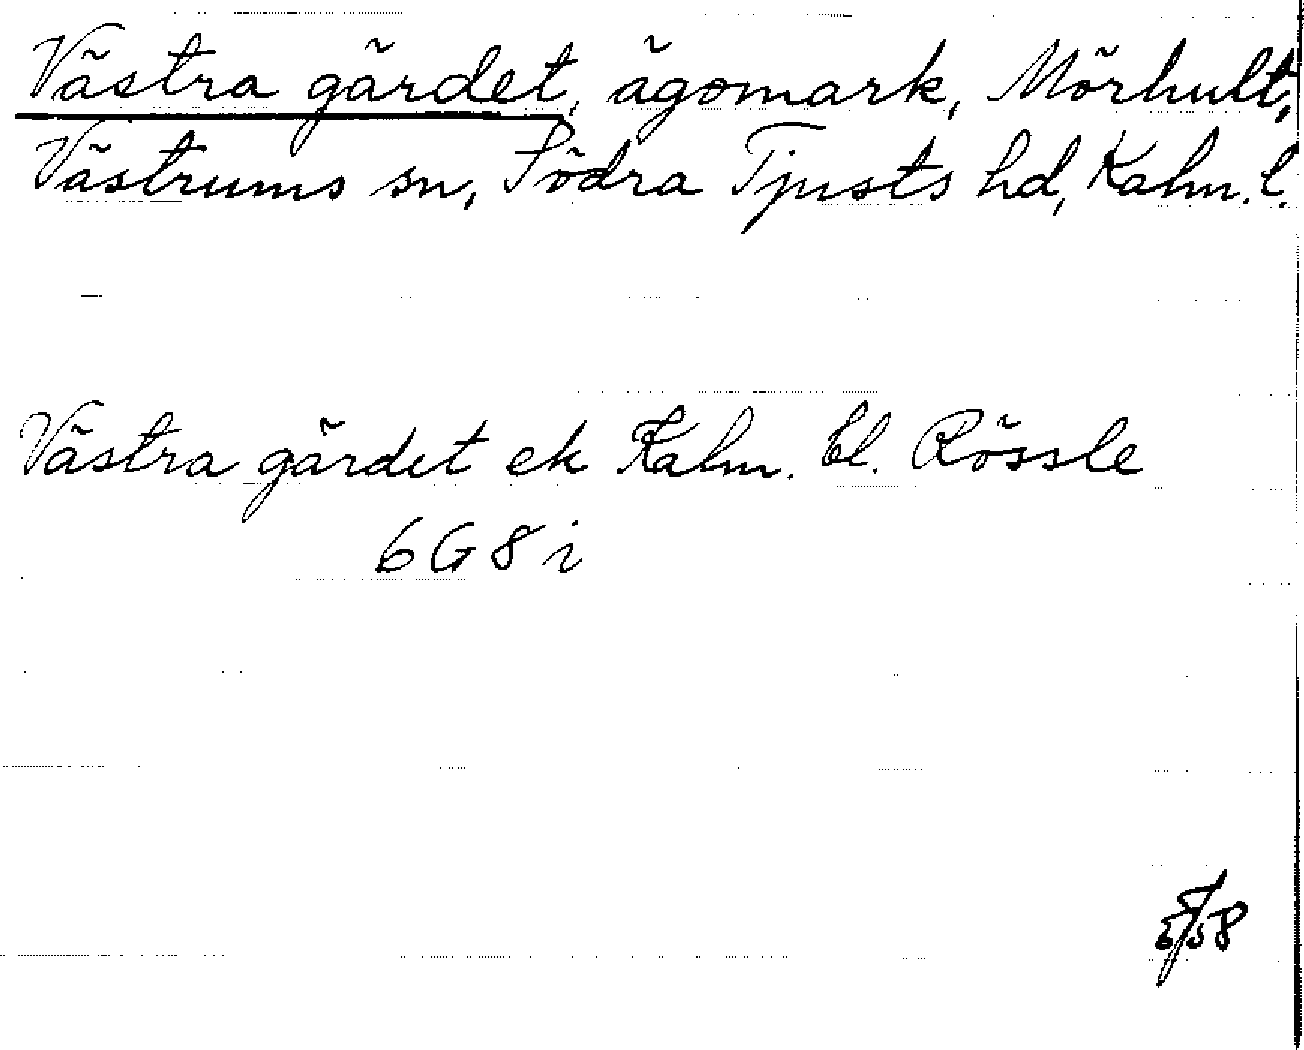 Västra gärdet, ägomark, Mörhult,
Västrums sn, Södra Tjusts hd, Kalm. l.
Västra gärdet ek Kalm. bl. Rössle
6 G 8 i